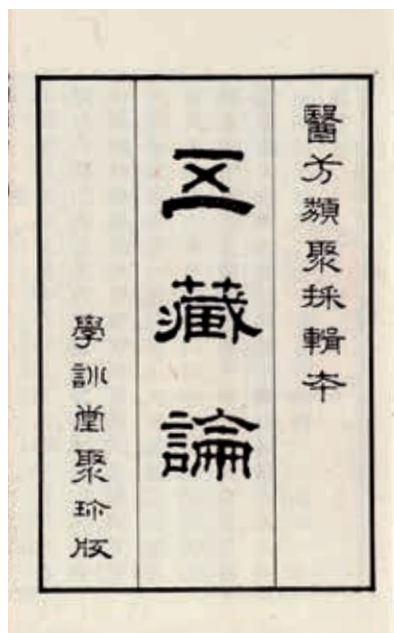 醫方類聚採輯本
五藏論
學訓堂聚珍版